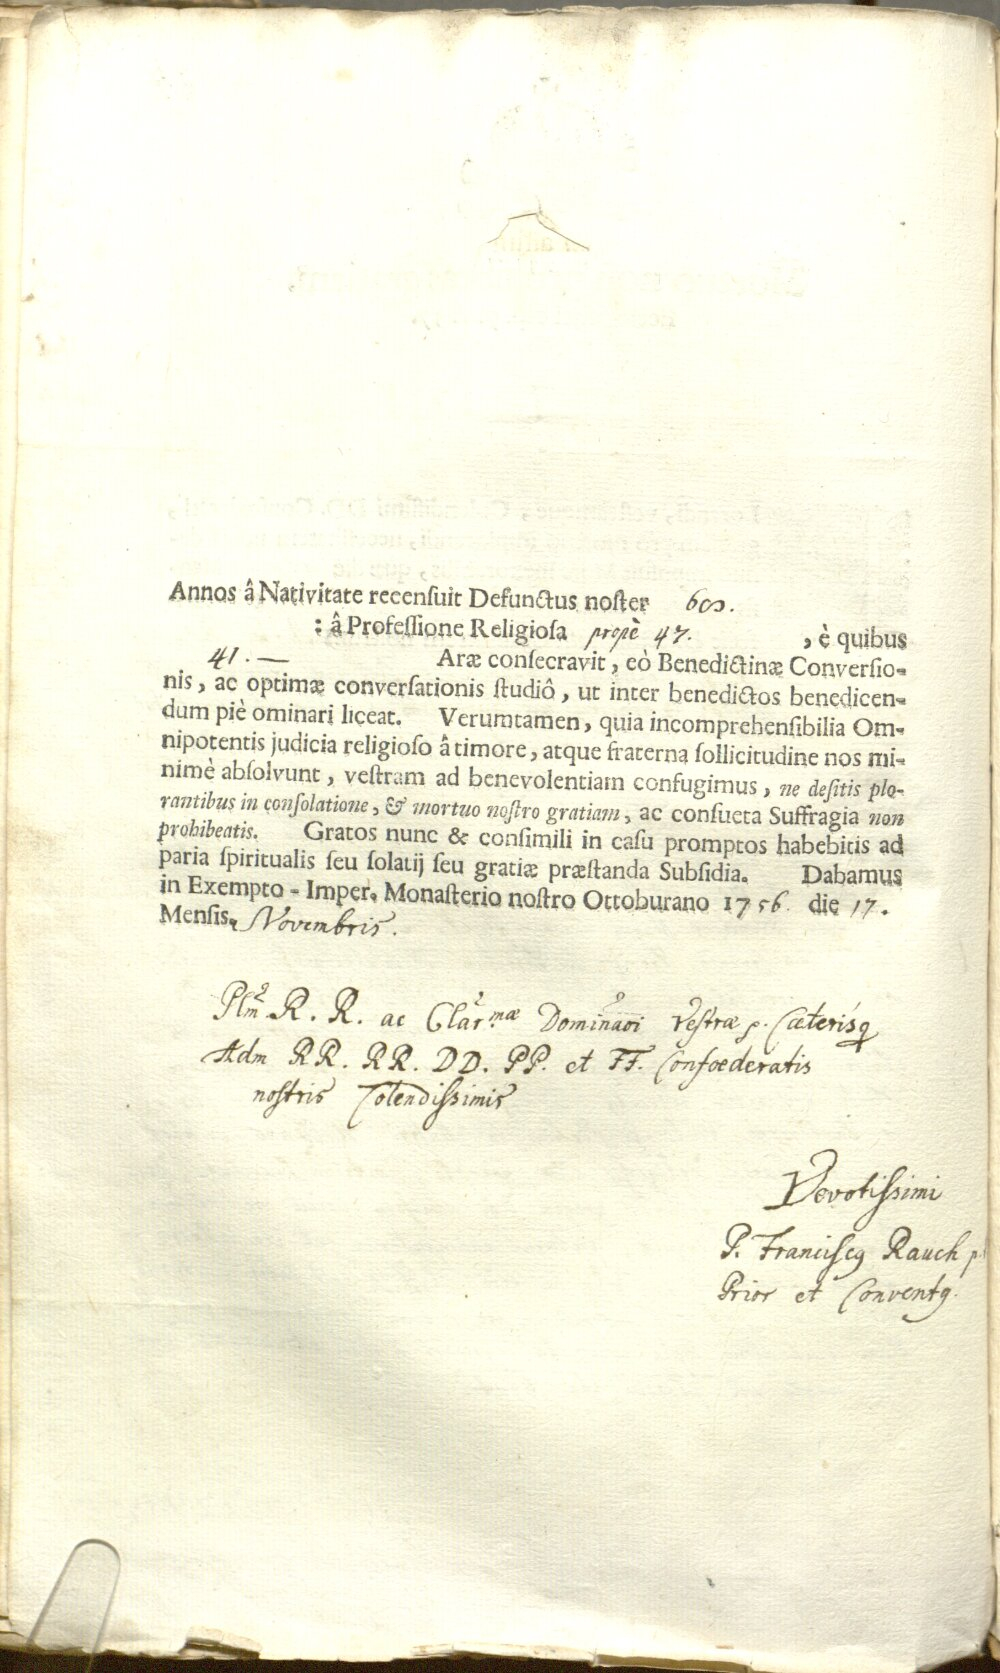 Annos â Nativitate recenſuit Defunctus noſter
: â Profeſſione Religioſa propè 47. , è quibus
41. — Aræ conſecravit, eò Benedictinæ Converſio-
nis, ac optimæ converſationis ſtudiô, ut inter benedictos benedicen-
dum piè ominari liceat. Verumtamen, quia incomprehenſibilia Om-
nipotentis judicia religioſo â timore, atque fraterna ſollicitudine nos mi-
nimè abſolvunt, veſtram ad benevolentiam confugimus, ne deſitis plo-
rantibus in conſolatione, & mortuo noſtro gratiam, ac conſueta Suffragia non
prohibeatis. Gratos nunc & conſimili in caſu promptos habebitis ad
paria ſpiritualis ſeu ſolatij ſeu gratiæ præſtanda Subſidia. Dabamus
in Exempto - Imper. Monaſterio noſtro Ottoburano 1756. die 17.
Menſis. Novembris.
R. R. ac Clar.mæ Veſtræ Cæterisq
Adm RR. RR. DD. PP. et FF. Confoederatis
noſtris Colendiſsimis
Devotiſsimi
P. Franciſcq Rauch
Prior et Conventq.